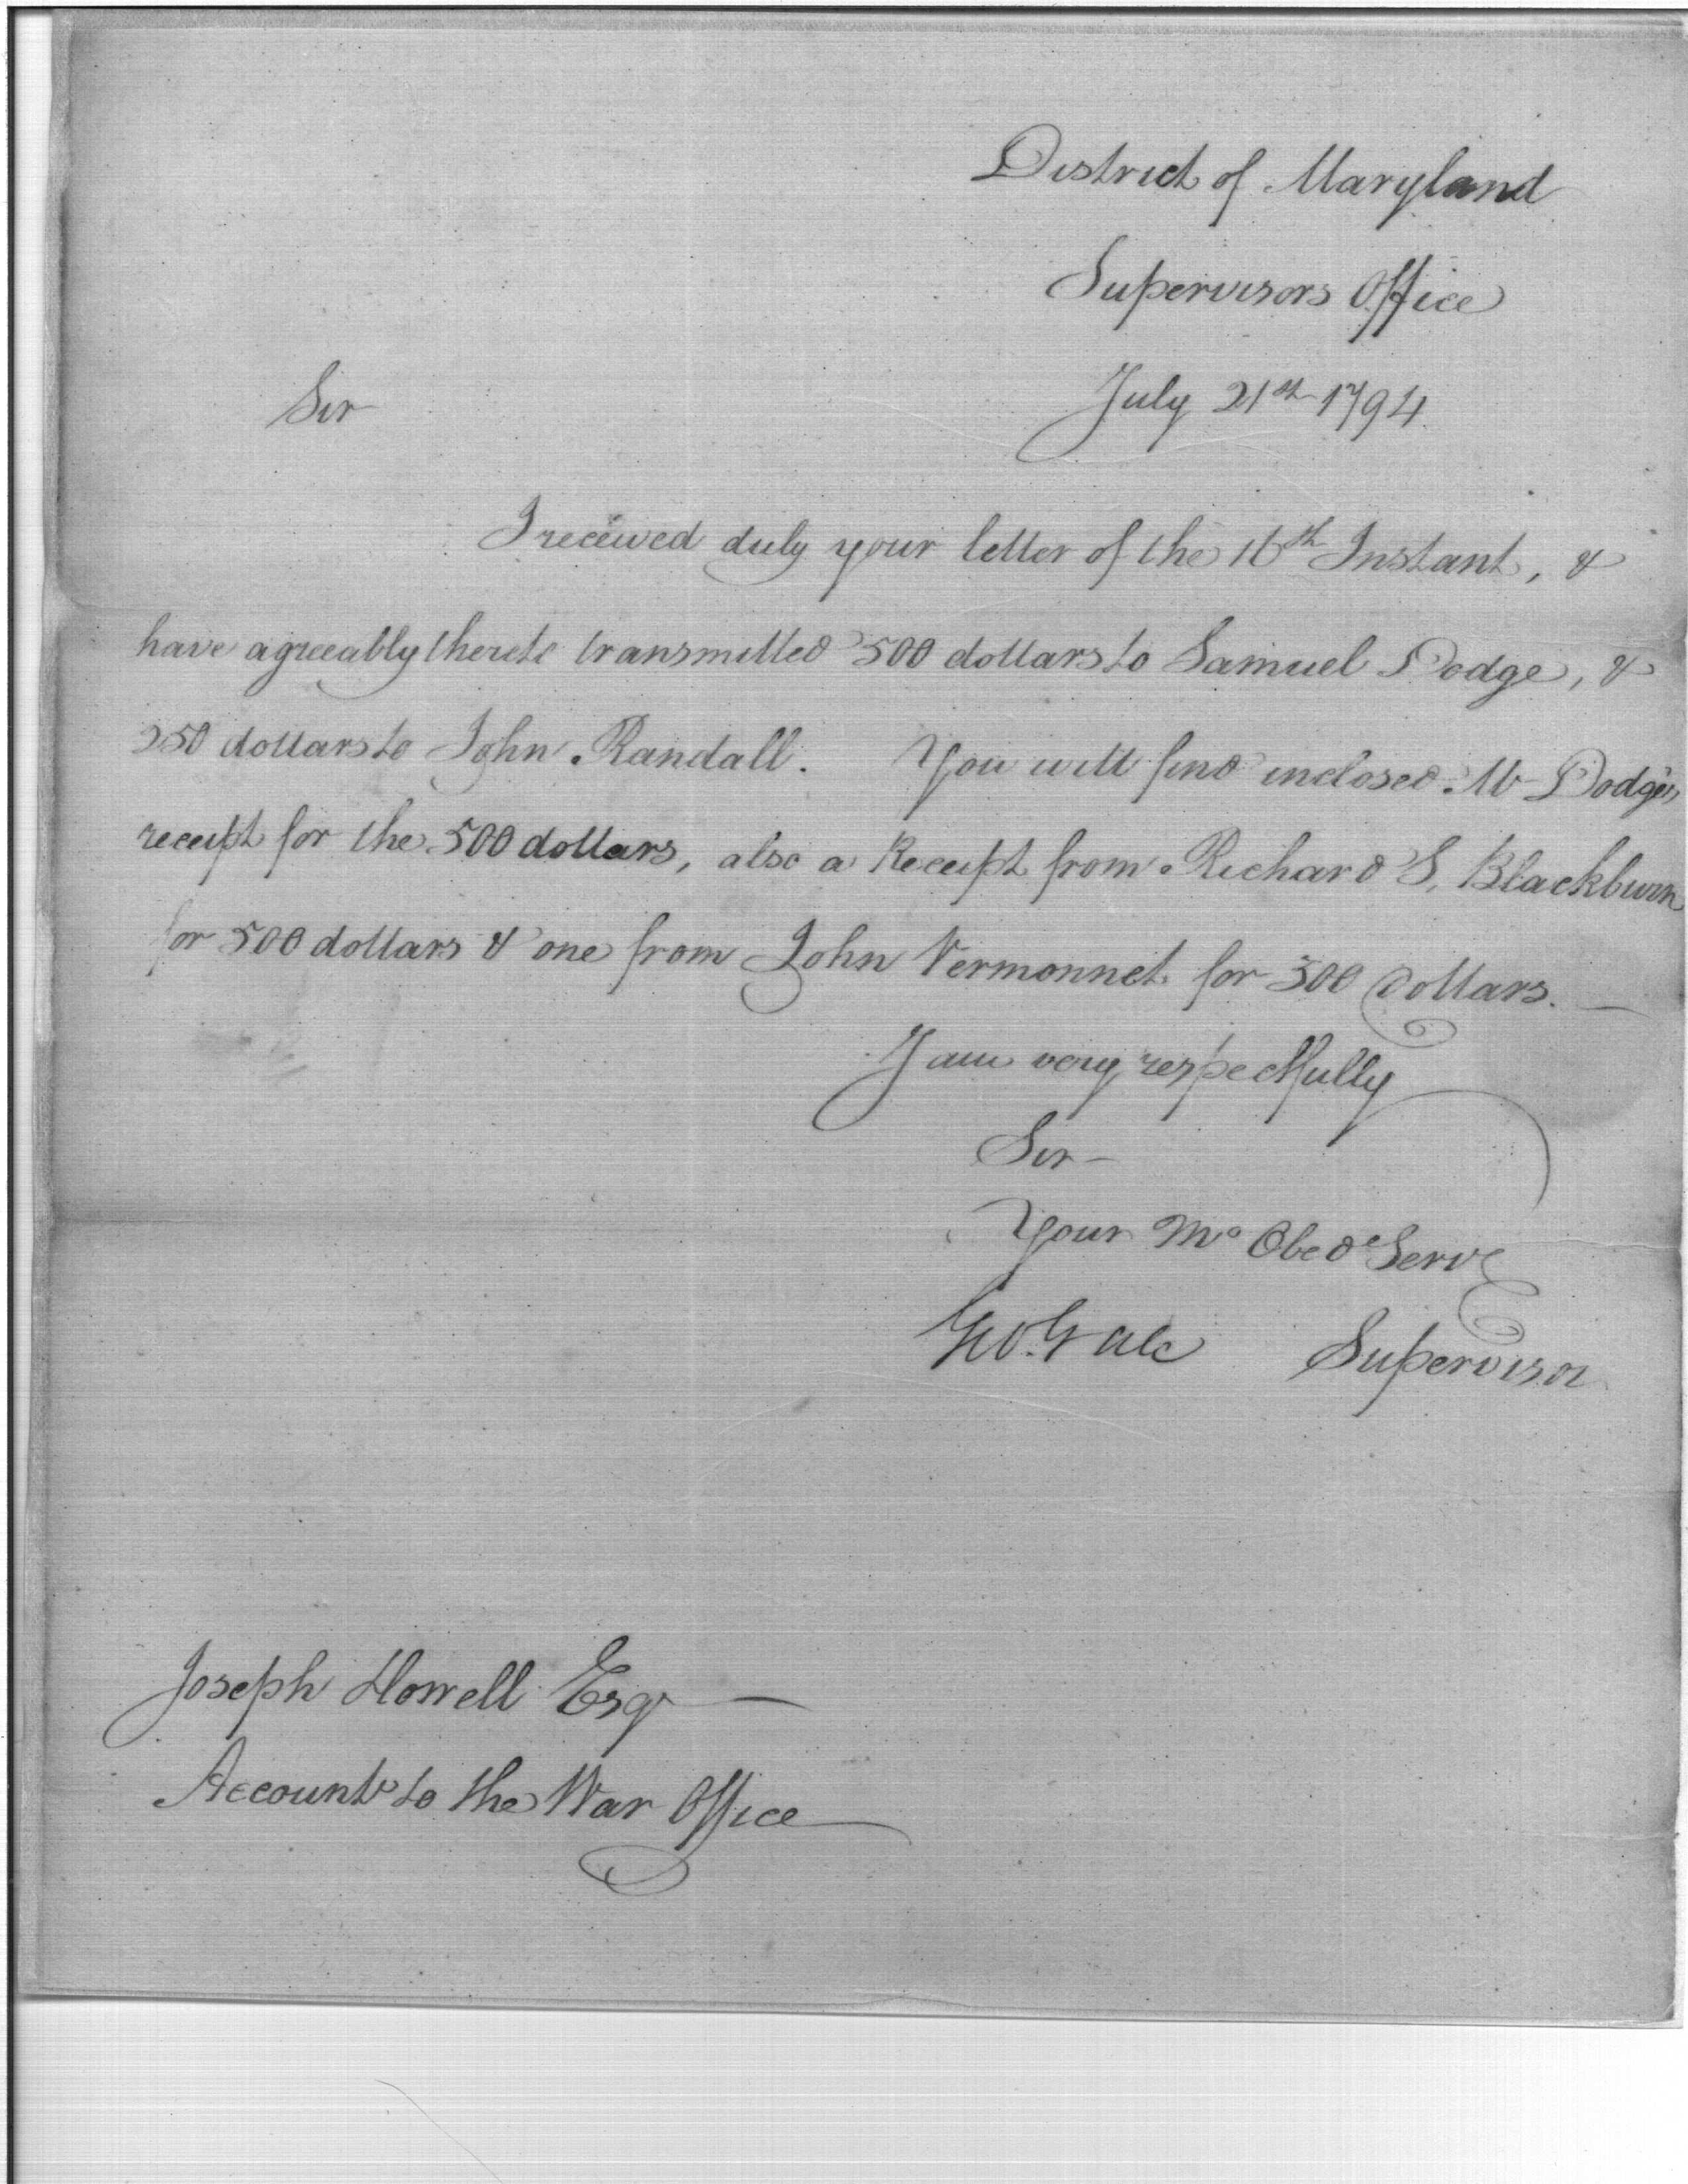 District of Maryland
Supervisors Office
July 21st 1794
Sir
I received duly your letter of the 16th Instant, &
have agreeably thereto transmitted 500 dollars to Samuel Dodge, &
250 dollars to John Randall. You will find inclosed Mr Dodges
receipt for the 500 dollars, also a Receipt from Richard S. Blackburn
for 500 dollars & one from John Vermonnet for 500 Dollars.
I am very respectfully
Sir
Your Mo Obed Serv
Geo. Gale Supervisor
Joseph Howell Esqr
Accountt to the War Office